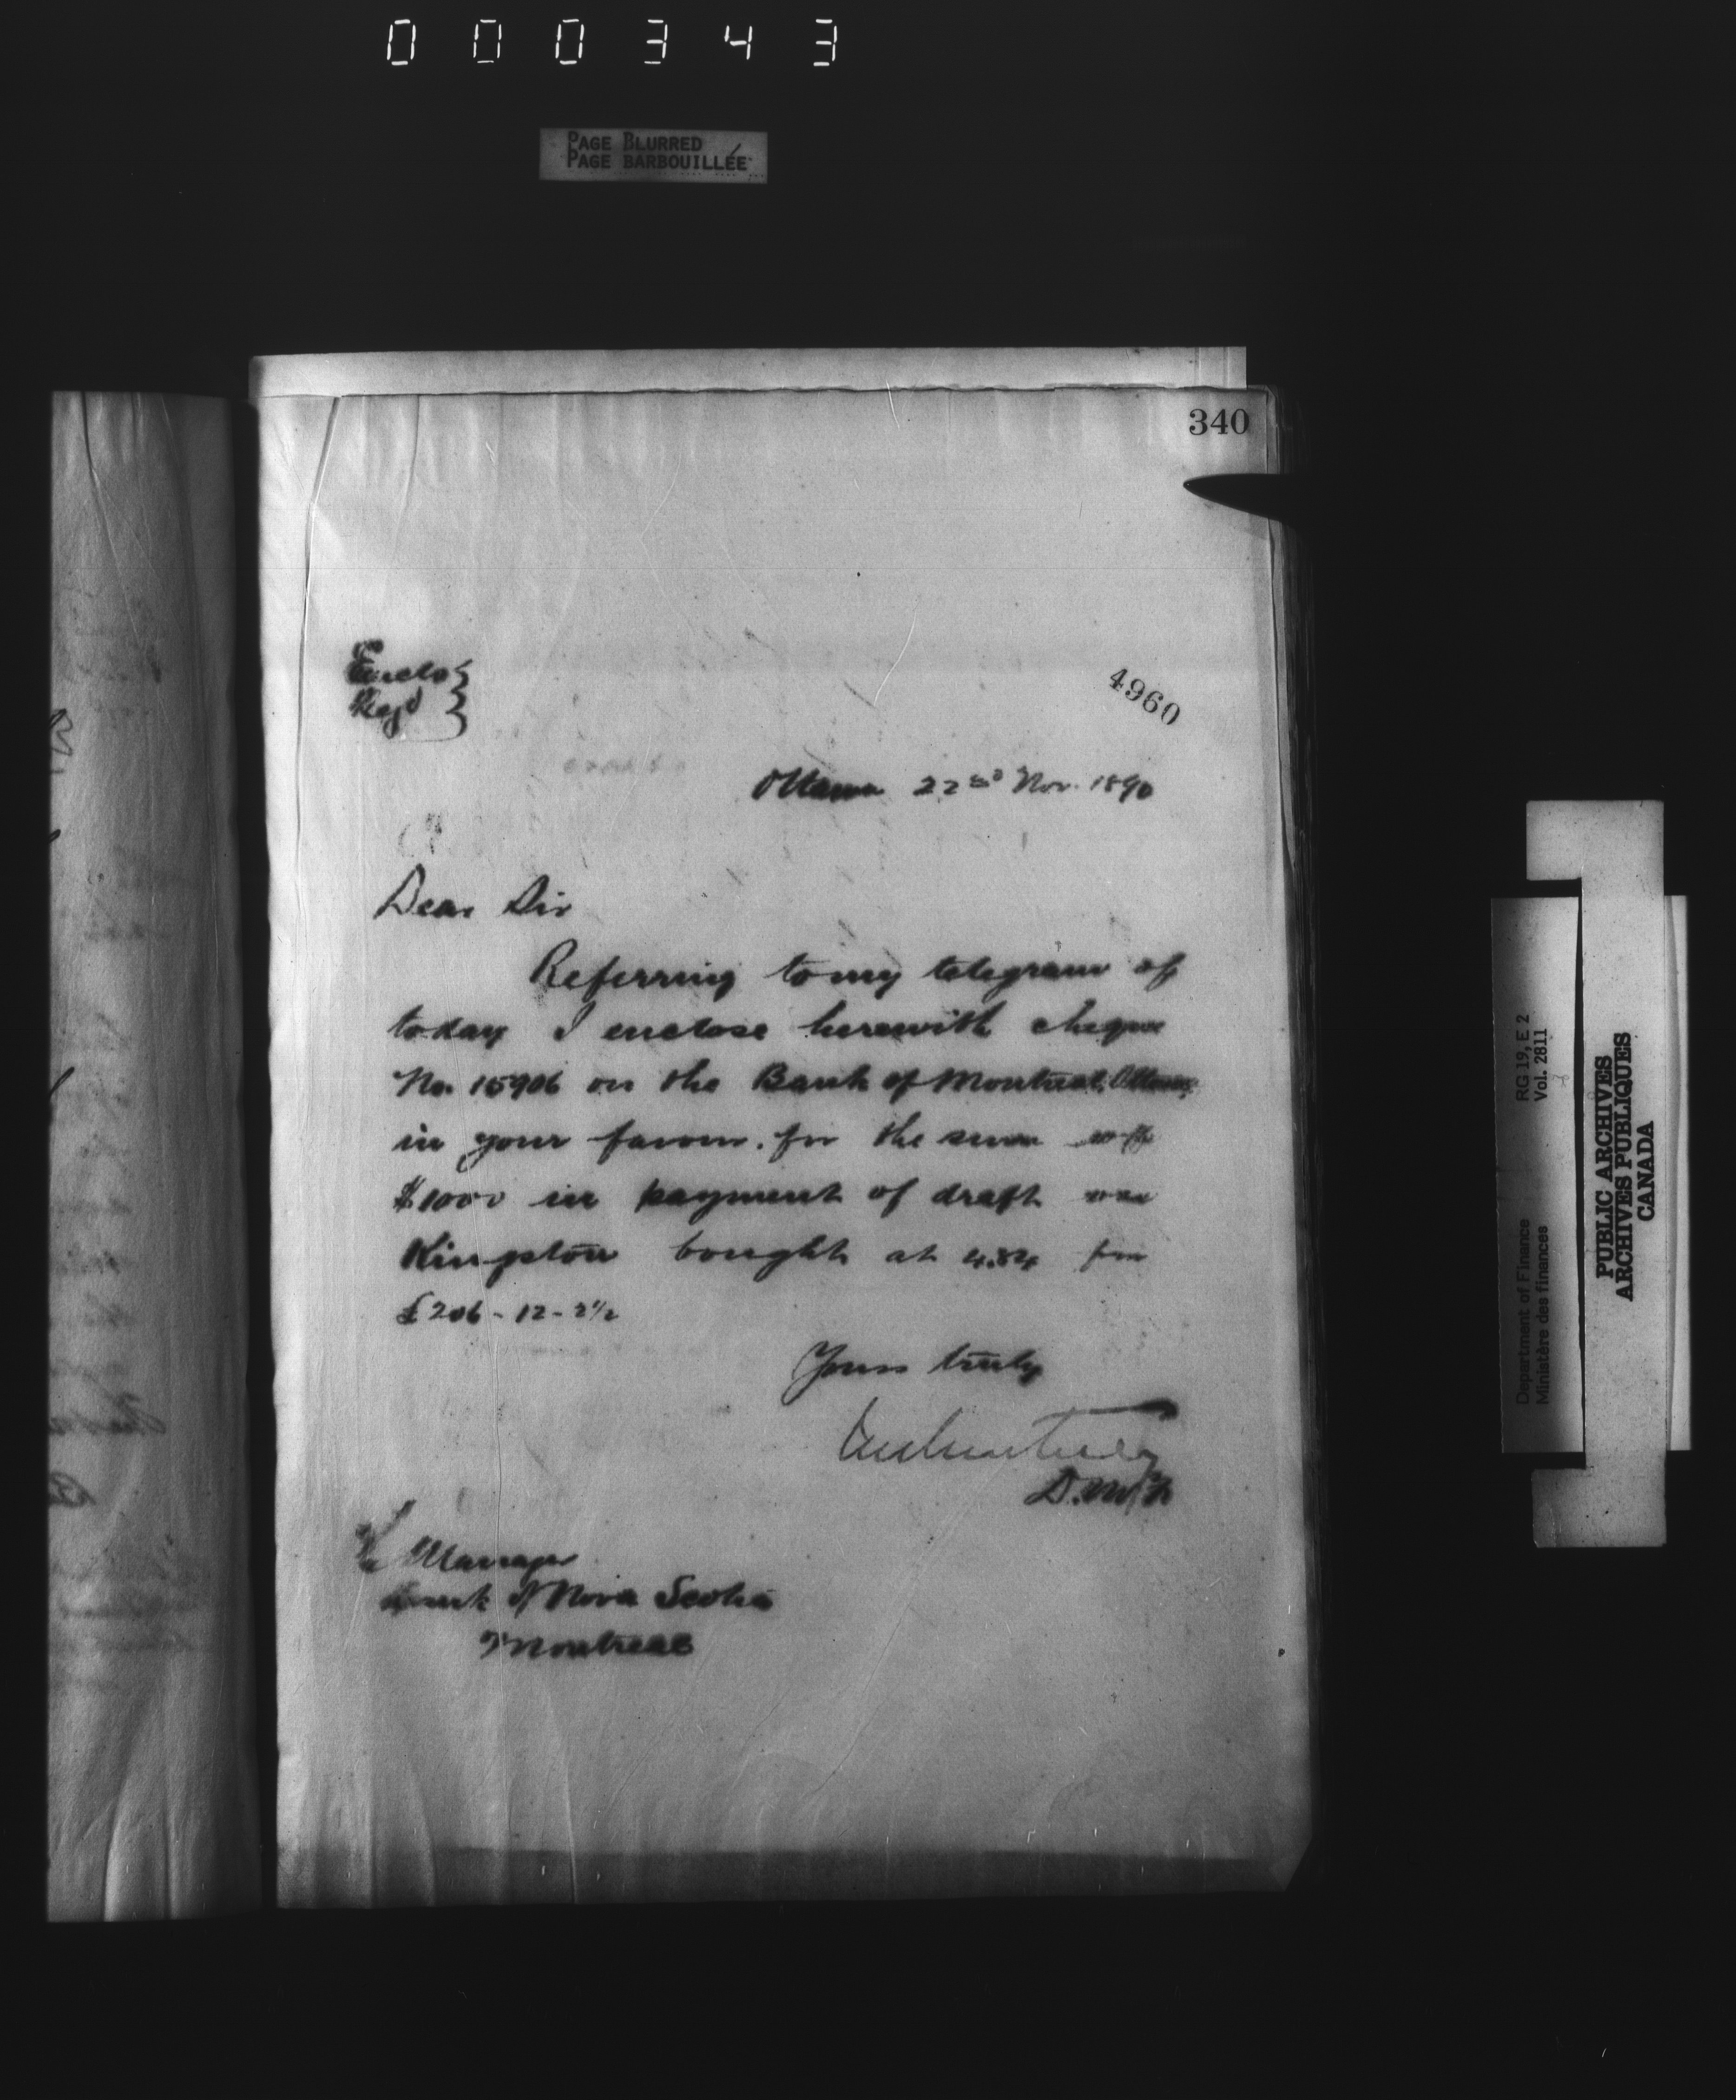 000343
PAGE BLURRED
PAGE BARBOUILLÉE
340
Enclo
Regd
4960
Ottawa 22nd Nov. 1890
Dear Sir
Referring to my telegram of
today I enclose herewith cheque
No. 15906 on the Bank of Montreal, Ottawa,
in your favour for the sum of
$1000 in payment of draft on
Kingston bought at 4.84 for
£206-12-2½
Yours truly
D.M.F.
The Manager
Bank of Nova Scotia
Montreal
Department of Finance
Ministère des finances
RG 19, E 2
Vol. 2811
PUBLIC ARCHIVES
ARCHIVES PUBLIQUES
CANADA